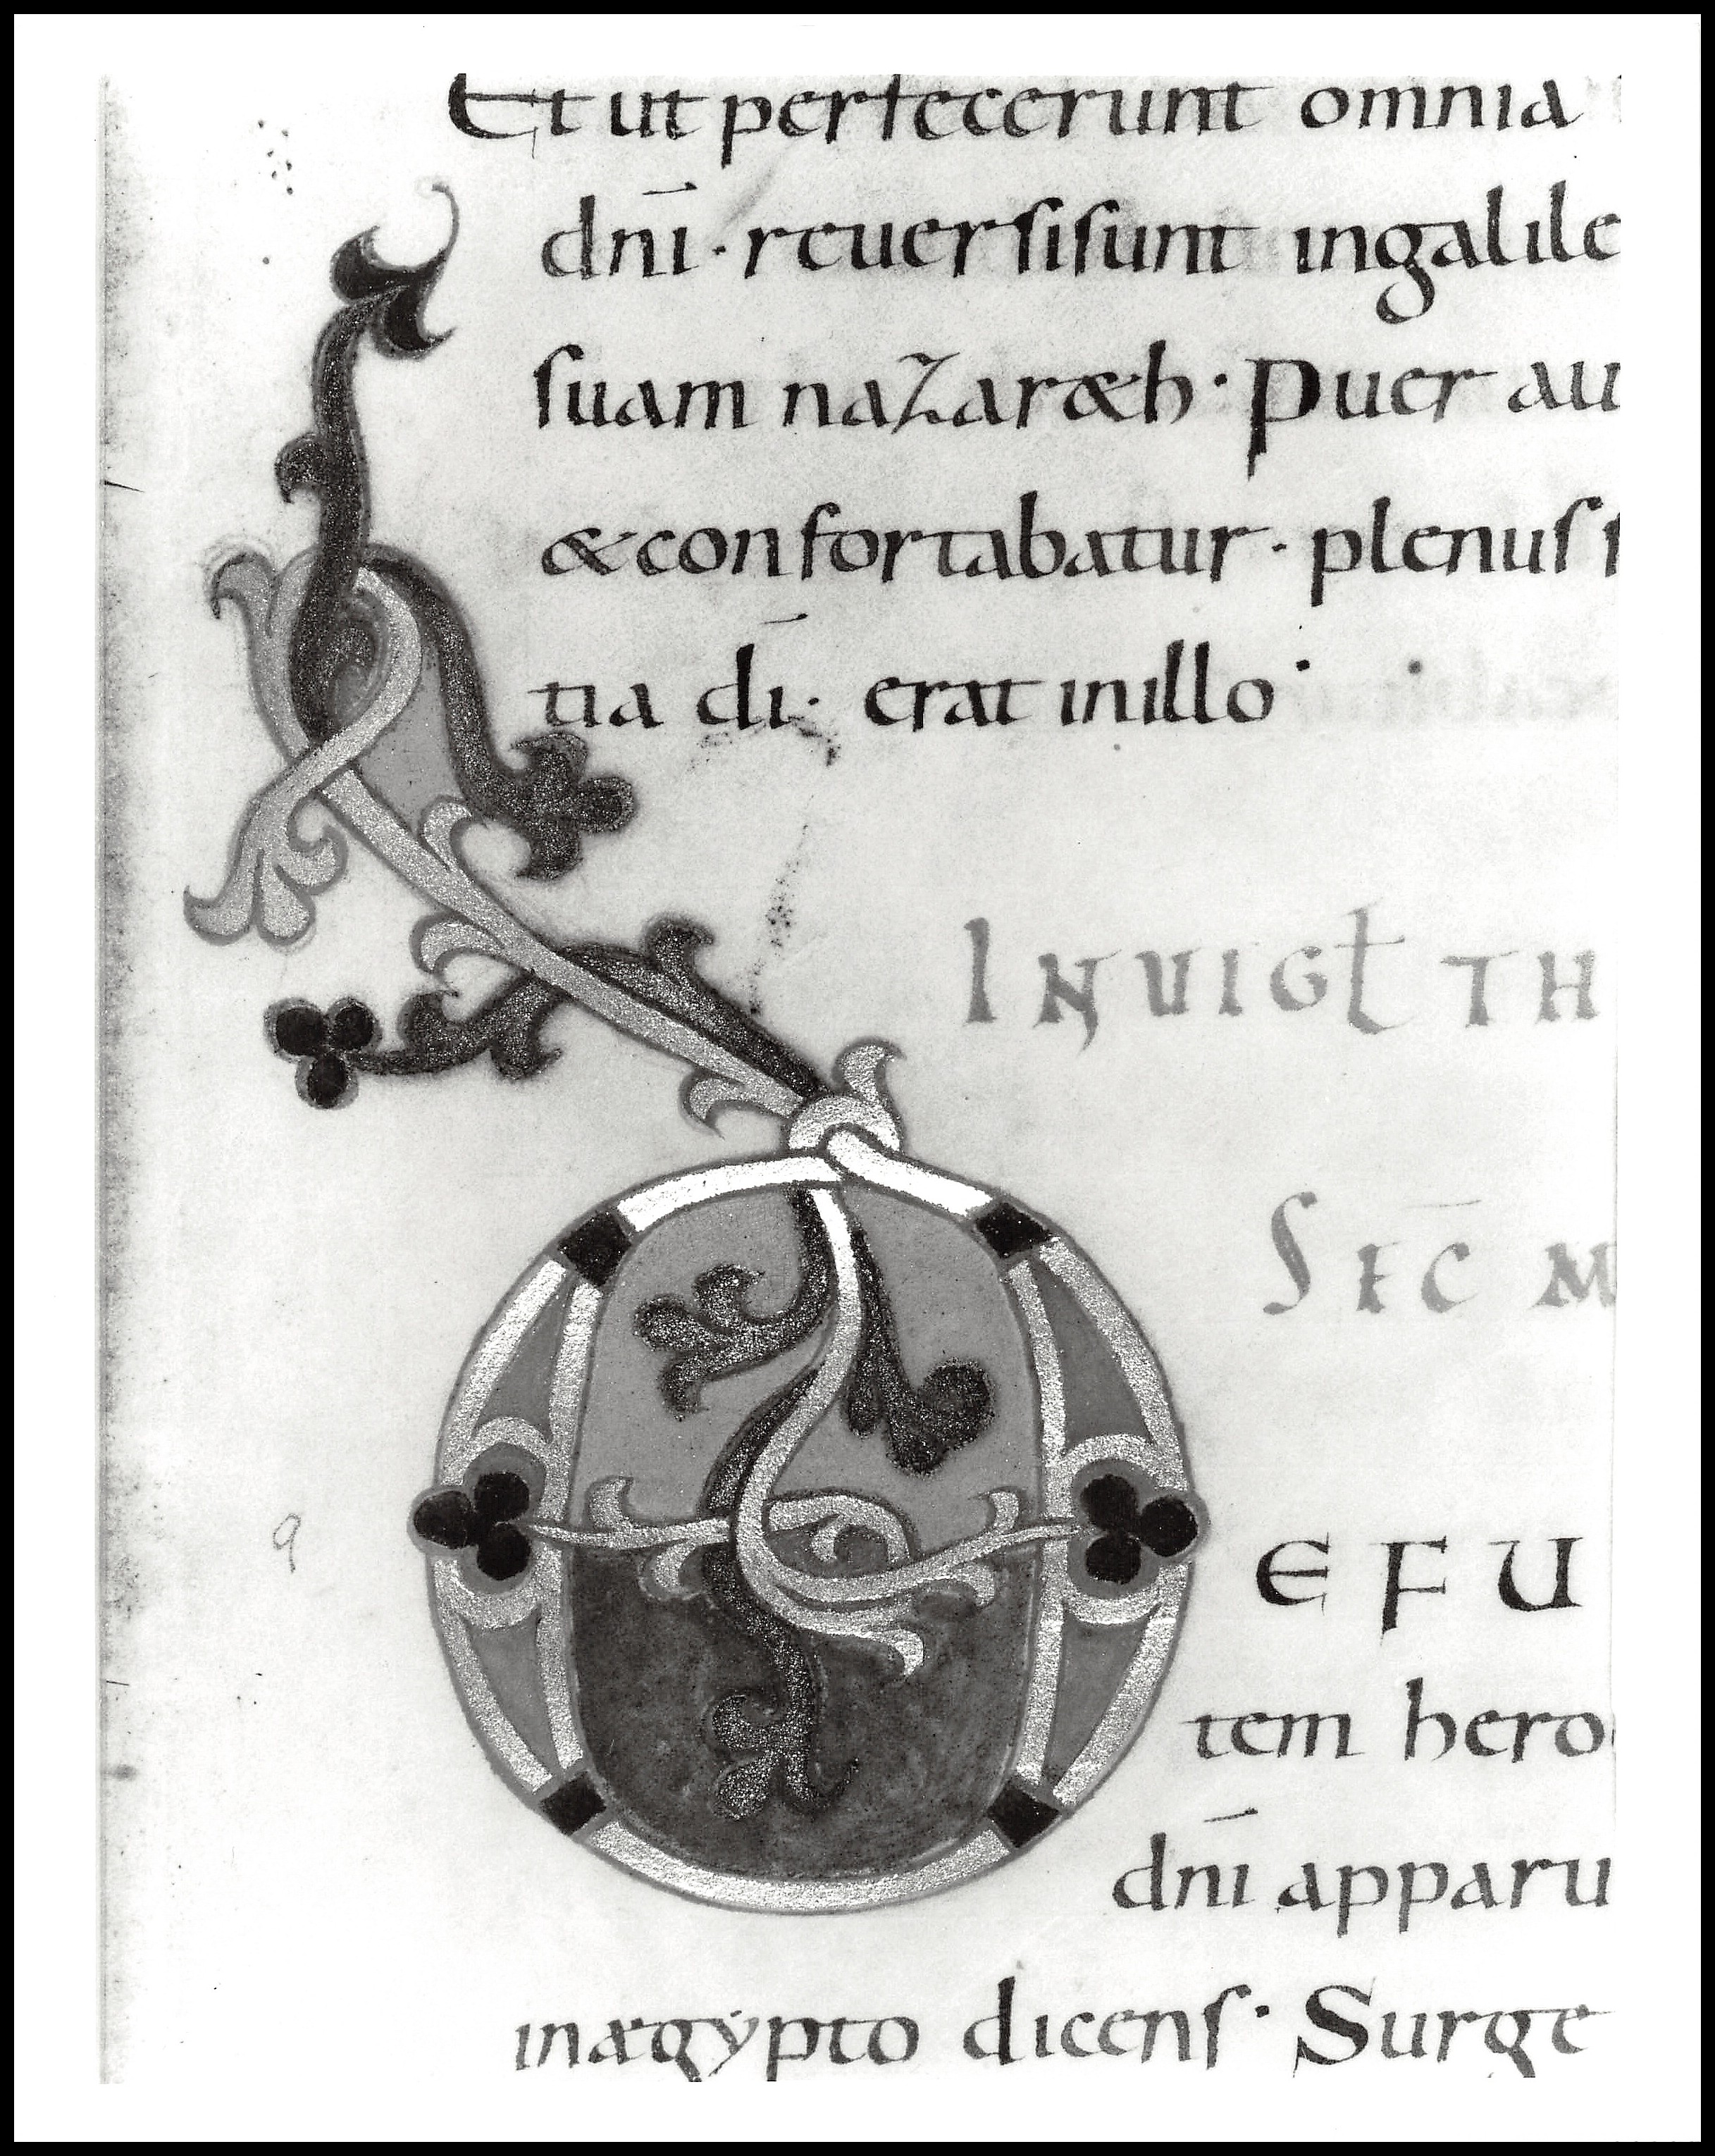 Et ut perfecerunt omnia
dnī· reuersisunt ingalile
suam nazar&h· Puer au
&confortabatur· plenus
tia dī· erat inillo·
INUIGŁ TH
SEC̄ M
D EFU
tem hero
dnī apparu
inaegypto dicens· Surge
9